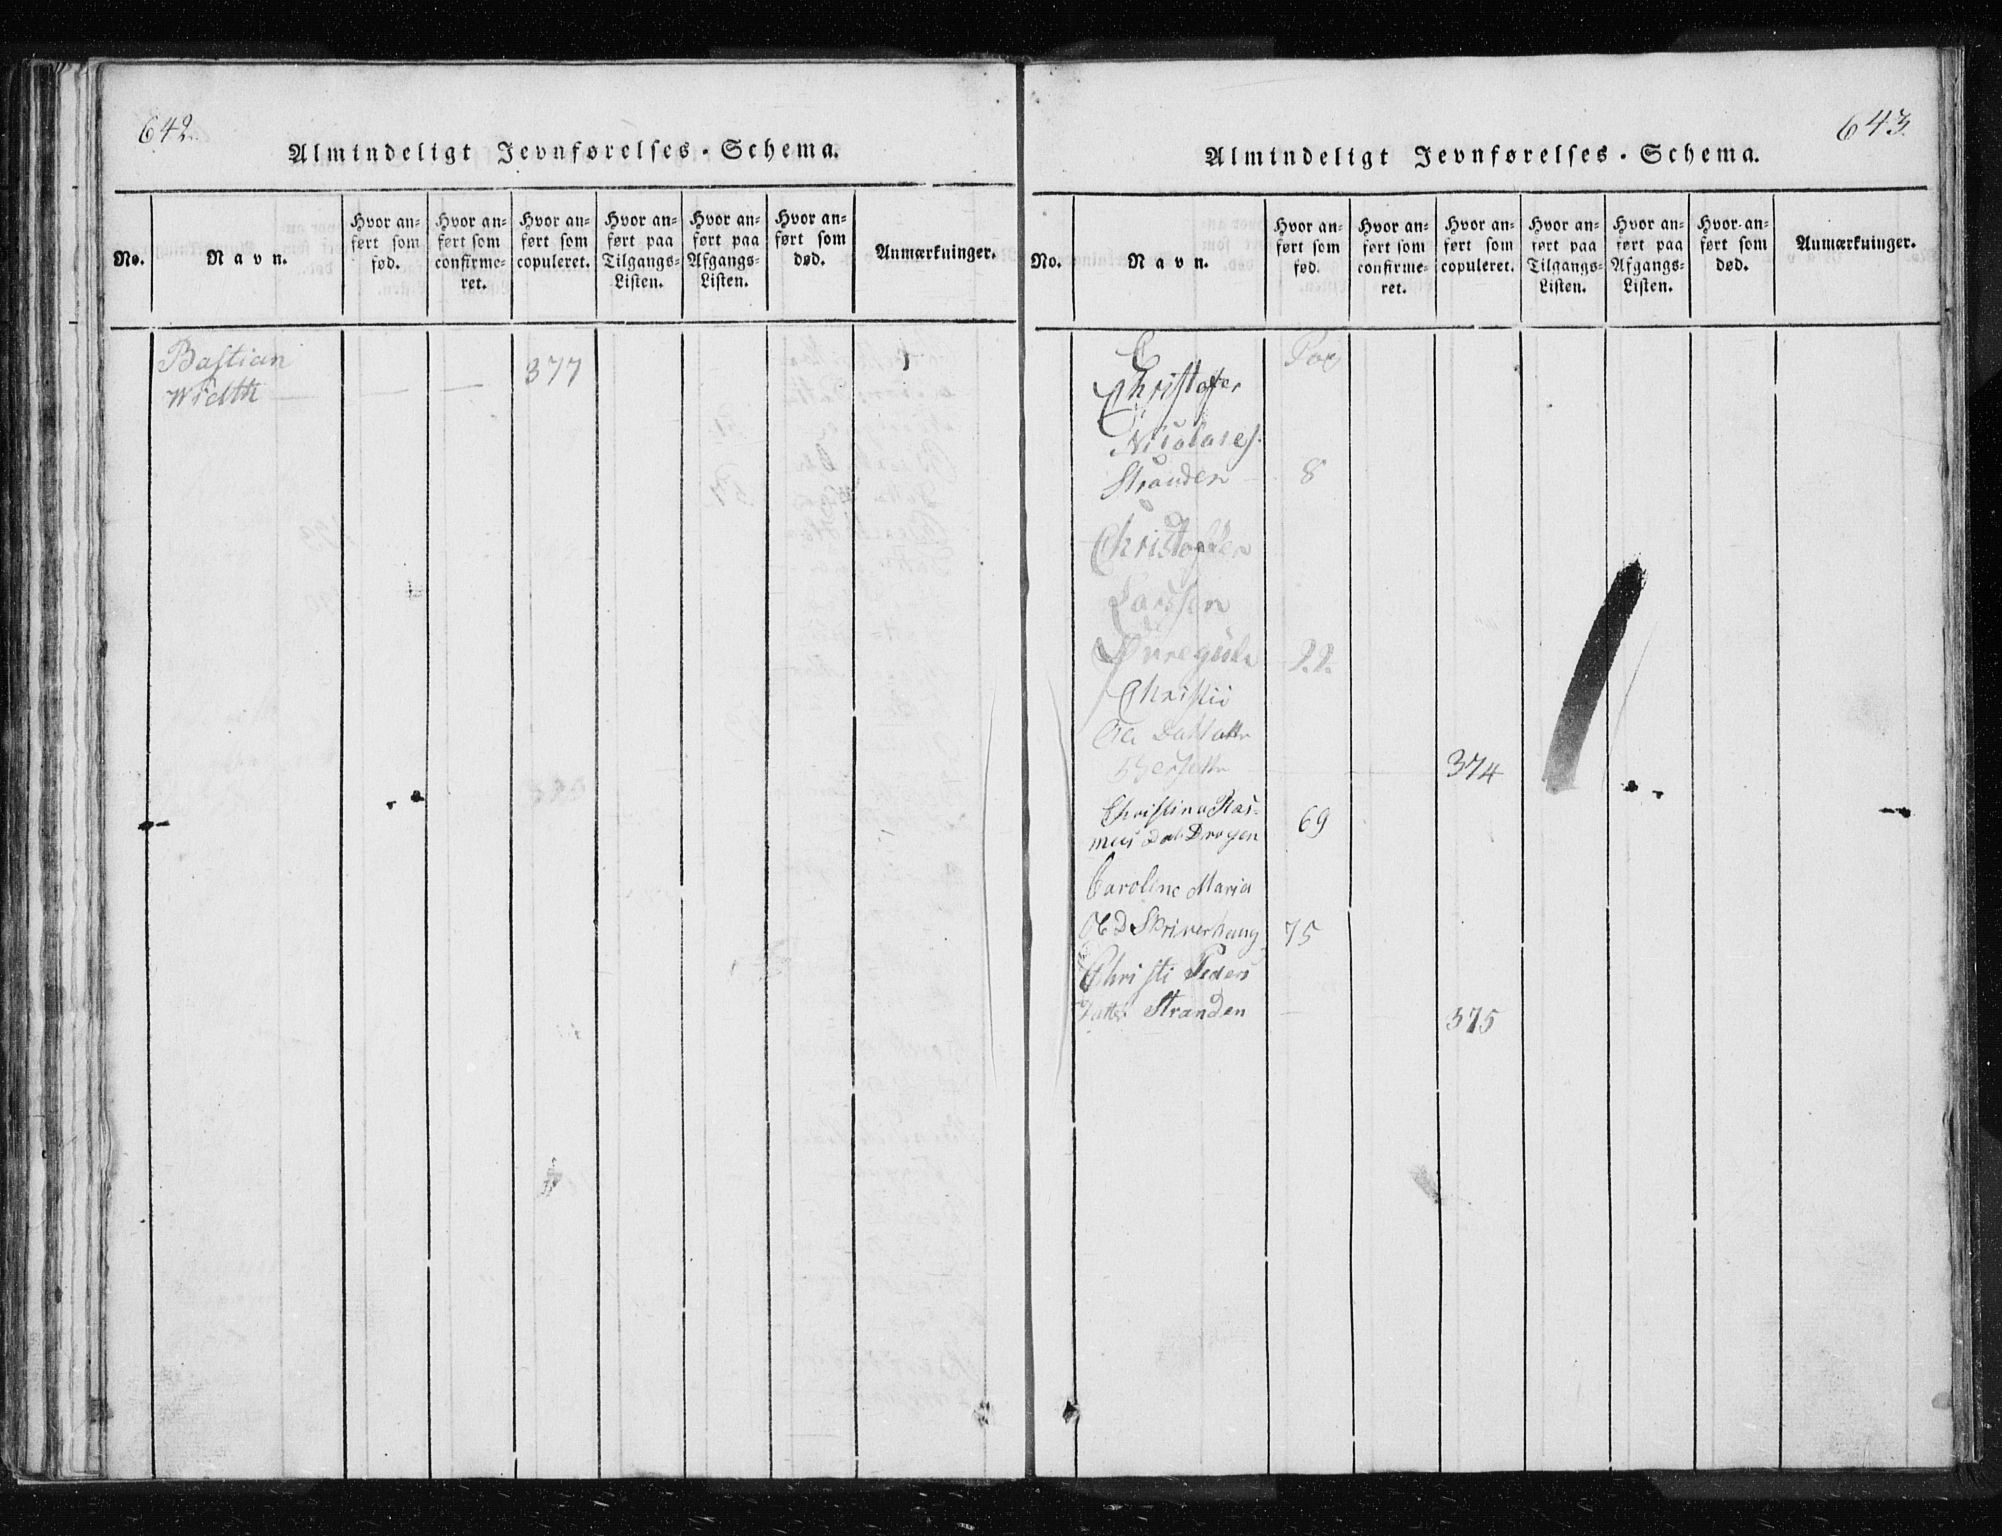 642.
Almindeligt Jevnførelses-Schema.
No.
Navn.
Hvor an-
ført som
fød.
Hvor an-
ført som
confirme-
ret.
Hvor an-
ført som
copuleret.
Hvor an-
ført paa
Tilgangs-
Listen.
Hvor an-
ført paa
Afgangs-
Listen.
Hvor an-
ført som
død.
Anmærkninger.
Bastian
Width — — — 377
643.
Almindeligt Jevnførelses-Schema.
No.
Navn.
Hvor an-
ført som
fød.
Hvor an-
ført som
confirme-
ret.
Hvor an-
ført som
copuleret.
Hvor an-
ført paa
Tilgangs-
Listen.
Hvor an-
ført paa
Afgangs-
Listen.
Hvor an-
ført som
død.
Anmærkninger.
C Pag
Christofer
Nicolaies.
Stranden - 8
Christopher
Larssen
22.
374
Christina Ras-
mus Dat Dragen 69
Caroline Maria
Skriverhaug 75
Christi Peders
Datter Stranden — 375